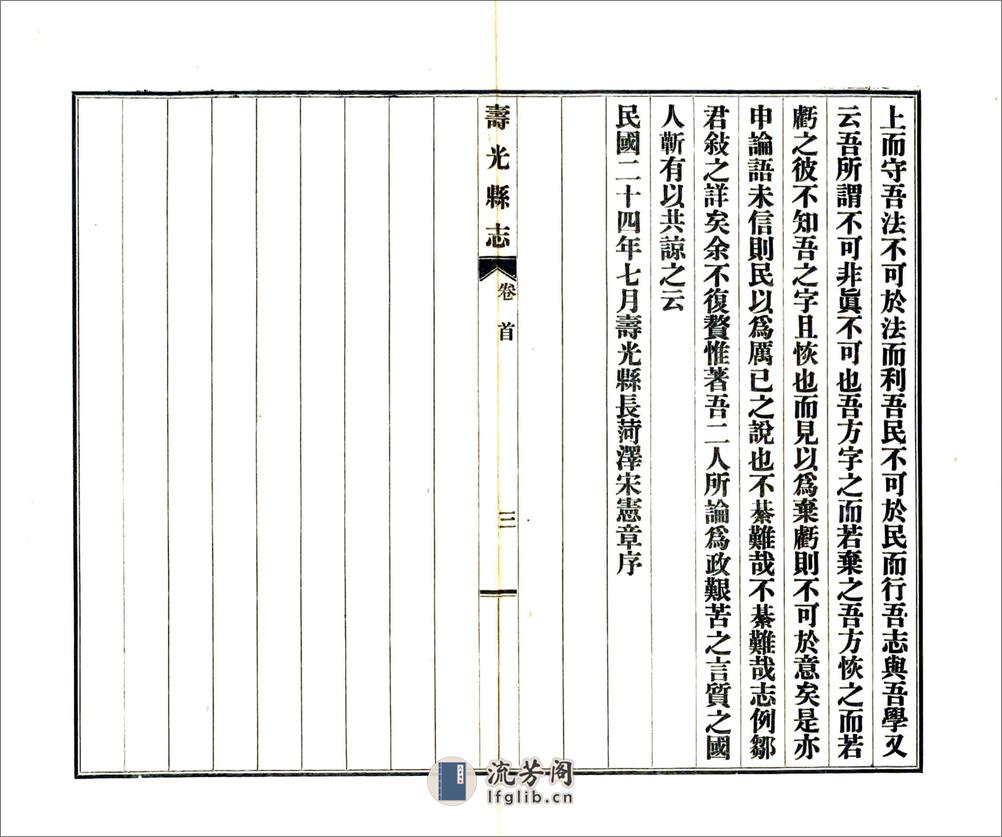 上而守吾法不可於法而利吾民不可於民而行吾志與吾學又
云吾所謂不可非眞不可也吾方字之而若棄之吾方恢之而若
虧之彼不知吾之字且恢也而見以爲棄虧則不可於意矣是亦
申論語未信則民以爲厲已之說也不綦難哉不綦難哉志例鄒
君敍之詳矣余不復贅惟著吾二人所論爲政艱苦之言質之國
人蘄有以共諒之云
民國二十四年七月壽光縣長菏澤宋憲章序
壽光縣志
卷首
三
流芳阁
lfglib.cn